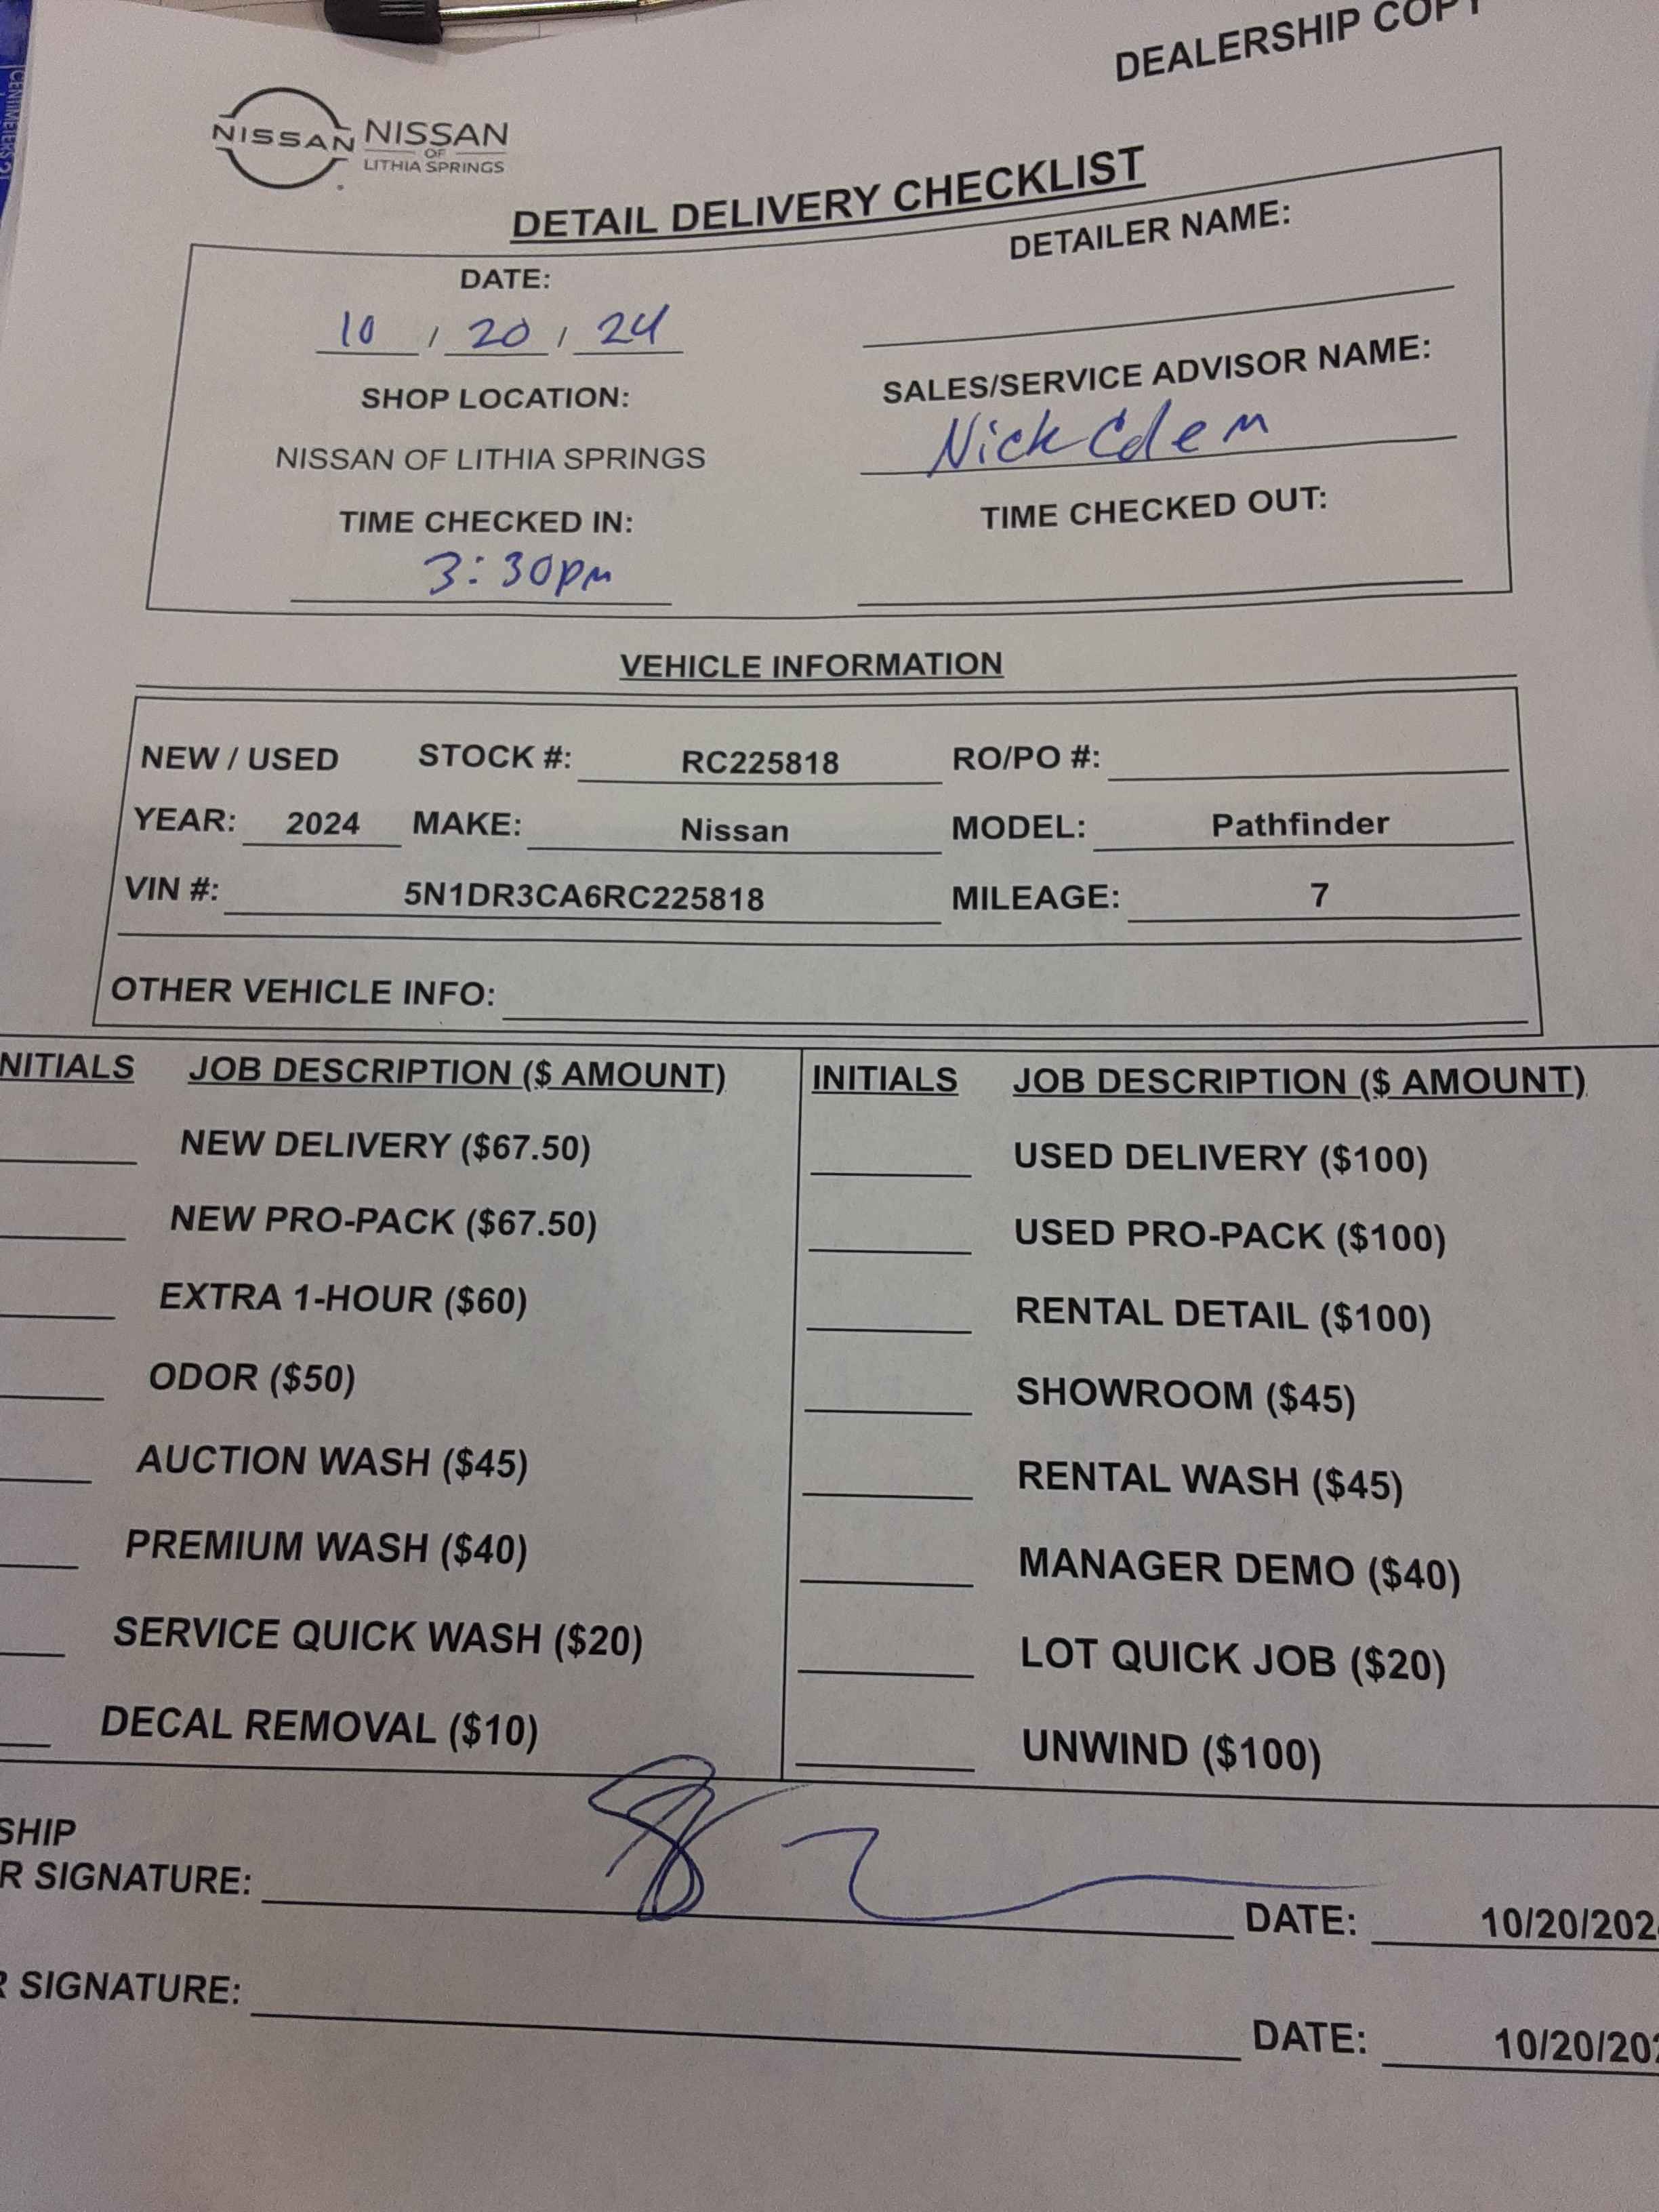 CENTIMETERS
DEALERSHIP COPY
NISSAN
NISSAN
OF
LITHIA SPRINGS
DETAIL DELIVERY CHECKLIST
DATE:
10 / 20 / 24
DETAILER NAME:
SHOP LOCATION:
NISSAN OF LITHIA SPRINGS
SALES/SERVICE ADVISOR NAME:
Nick
TIME CHECKED IN:
3:30pm
TIME CHECKED OUT:
VEHICLE INFORMATION
NEW / USED STOCK #: RC225818 RO/PO #:
YEAR: 2024 MAKE: Nissan MODEL: Pathfinder
VIN #: 5N1DR3CA6RC225818 MILEAGE: 7
OTHER VEHICLE INFO:
NITIALS JOB DESCRIPTION ($ AMOUNT)
NEW DELIVERY ($67.50)
NEW PRO-PACK ($67.50)
EXTRA 1-HOUR ($60)
ODOR ($50)
AUCTION WASH ($45)
PREMIUM WASH ($40)
SERVICE QUICK WASH ($20)
DECAL REMOVAL ($10)
INITIALS JOB DESCRIPTION ($ AMOUNT)
USED DELIVERY ($100)
USED PRO-PACK ($100)
RENTAL DETAIL ($100)
SHOWROOM ($45)
RENTAL WASH ($45)
MANAGER DEMO ($40)
LOT QUICK JOB ($20)
UNWIND ($100)
SHIP
R SIGNATURE: DATE: 10/20/202
R SIGNATURE: DATE: 10/20/202